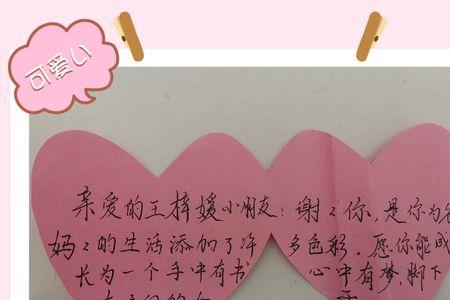 可爱い
亲爱的王梓媛小朋友：谢々你，是你为
妈々的生活添加了许多色彩。愿你能成
长为一个手中有书心中有梦，脚下